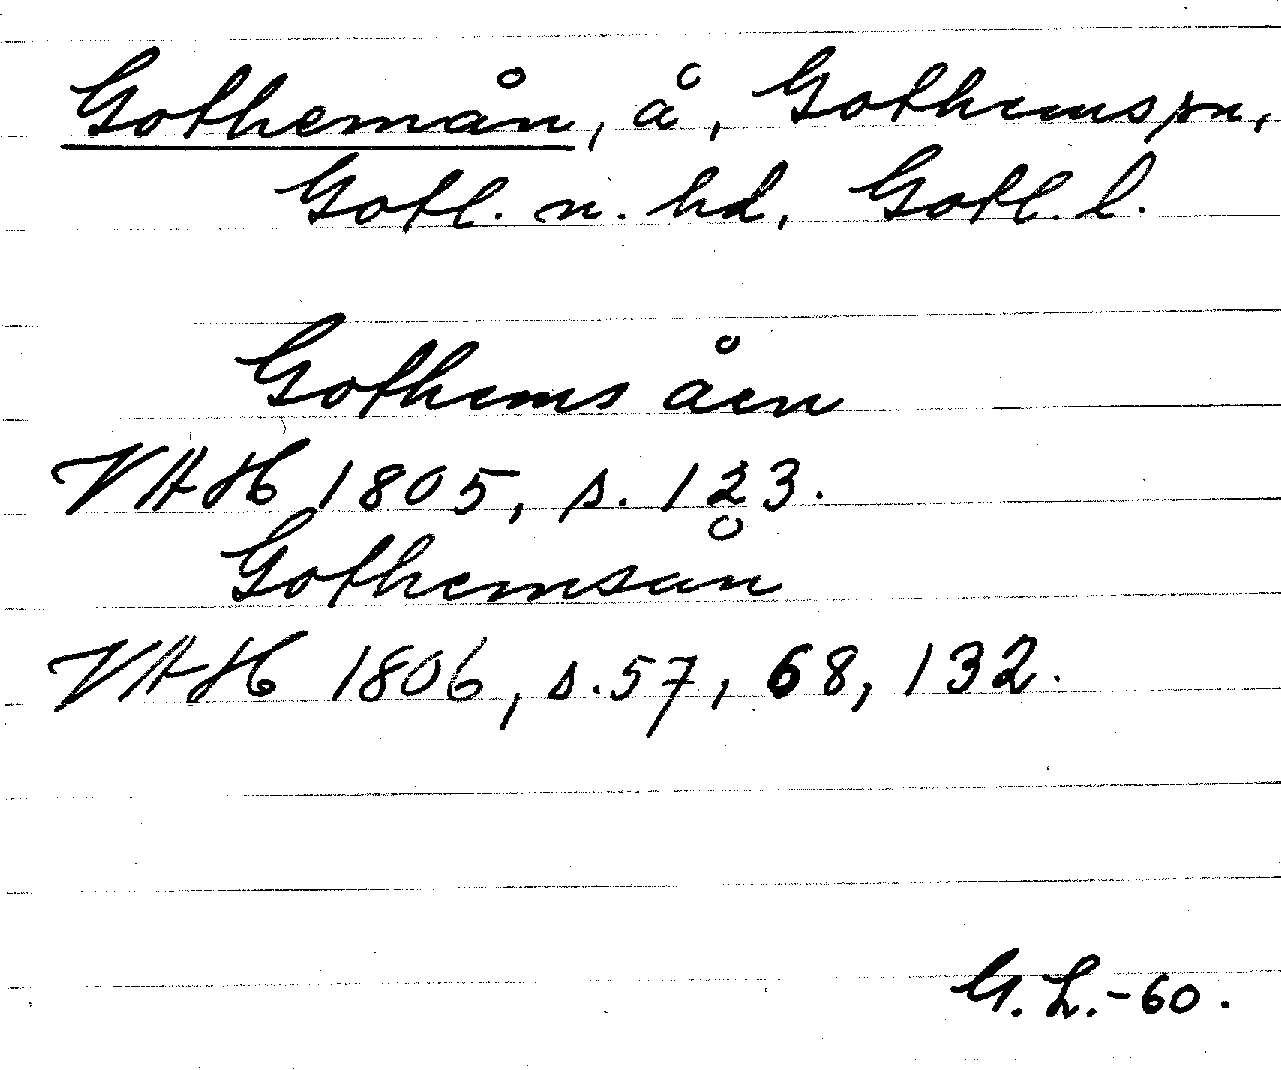 Gotheman̊, å, Gothems sn,
Gotl. n. hd, Gotl. l.
Gothems åen
VAH 1805, s. 123.
Gothemsån
VAH 1806, s. 57, 68, 132.
G. L. -60.